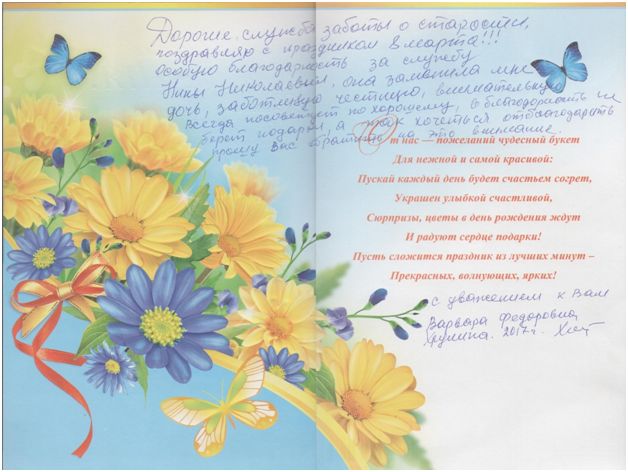 Дорогие служба заботы о старости,
поздравляю с праздником 8 марта!!!
особую благодарность за службу
Нины Николаевны, она заменила мне
дочь, заботливую честную, внимательную
всегда посоветует по хорошему, в благодарность не
берет подарки, а так хочеться отблагодарить
прошу Вас обратить на это внимание.
От нас — пожеланий чудесный букет
Для нежной и самой красивой:
Пускай каждый день будет счастьем согрет,
Украшен улыбкой счастливой,
Сюрпризы, цветы в день рождения ждут
И радуют сердце подарки!
Пусть сложится праздник из лучших минут –
Прекрасных, волнующих, ярких!
с уважением к Вам
Варвара Федоровна
2017 г.